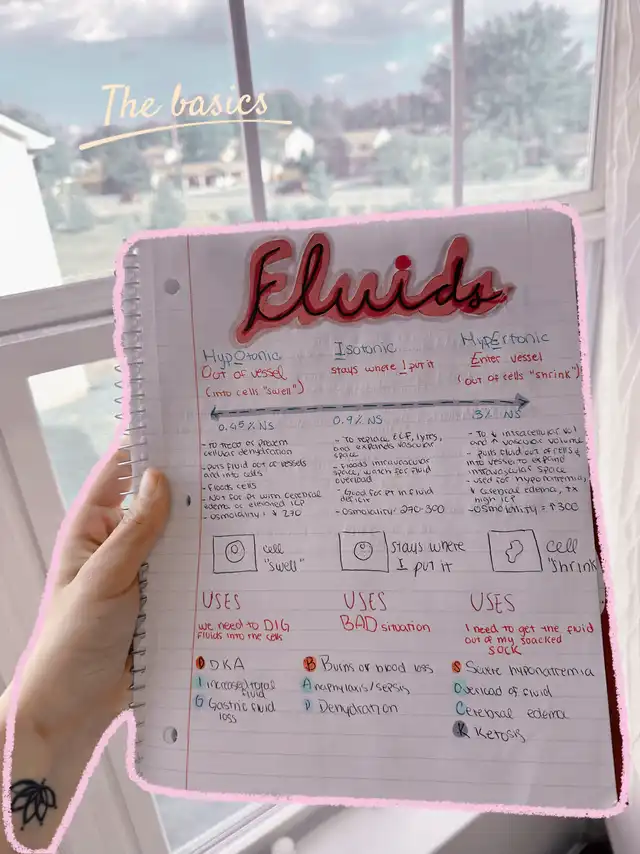 The basics
Fluids
HypOtonic
Out of vessel
(into cells "swell")
0.45% NS
- To treat or prevent
cellular dehydration
- puts fluid out of vessels
and into cells
- Floods cells
- Not for pt with cerebral
edema or elevated ICP
- osmolality: ↓ 270
cell
"swell"
USES
we need to DIG
fluids into the cells
D DKA
I Increased total
fluid
G Gastric fluid
loss
Isotonic
stays where I put it
0.9% NS
- To replace ECF, lytes,
and expands vascular
space
- Floods intravascular
space, watch for fluid
overload
- Good for pt in fluid
deficit
- Osmolality: 270-300
stays where
I put it
USES
BAD situation
B Burns or blood loss
A Anaphylaxis/sepsis
D Dehydration
HypErtonic
Enter vessel
(out of cells "shrink")
3% NS
- To ↓ intracellular vol
and ↑ vascular volume
- pulls fluid out of cells &
into vessel to expand
intravascular space
- used for hyponatremia,
↓ cerebral edema, tx
high ICP
- Osmolality = ↑ 300
cell
"shrink
USES
I need to get the fluid
out of my soacked
SOCK
S Severe hyponatremia
O Overload of fluid
C Cerebral edema
K Ketosis